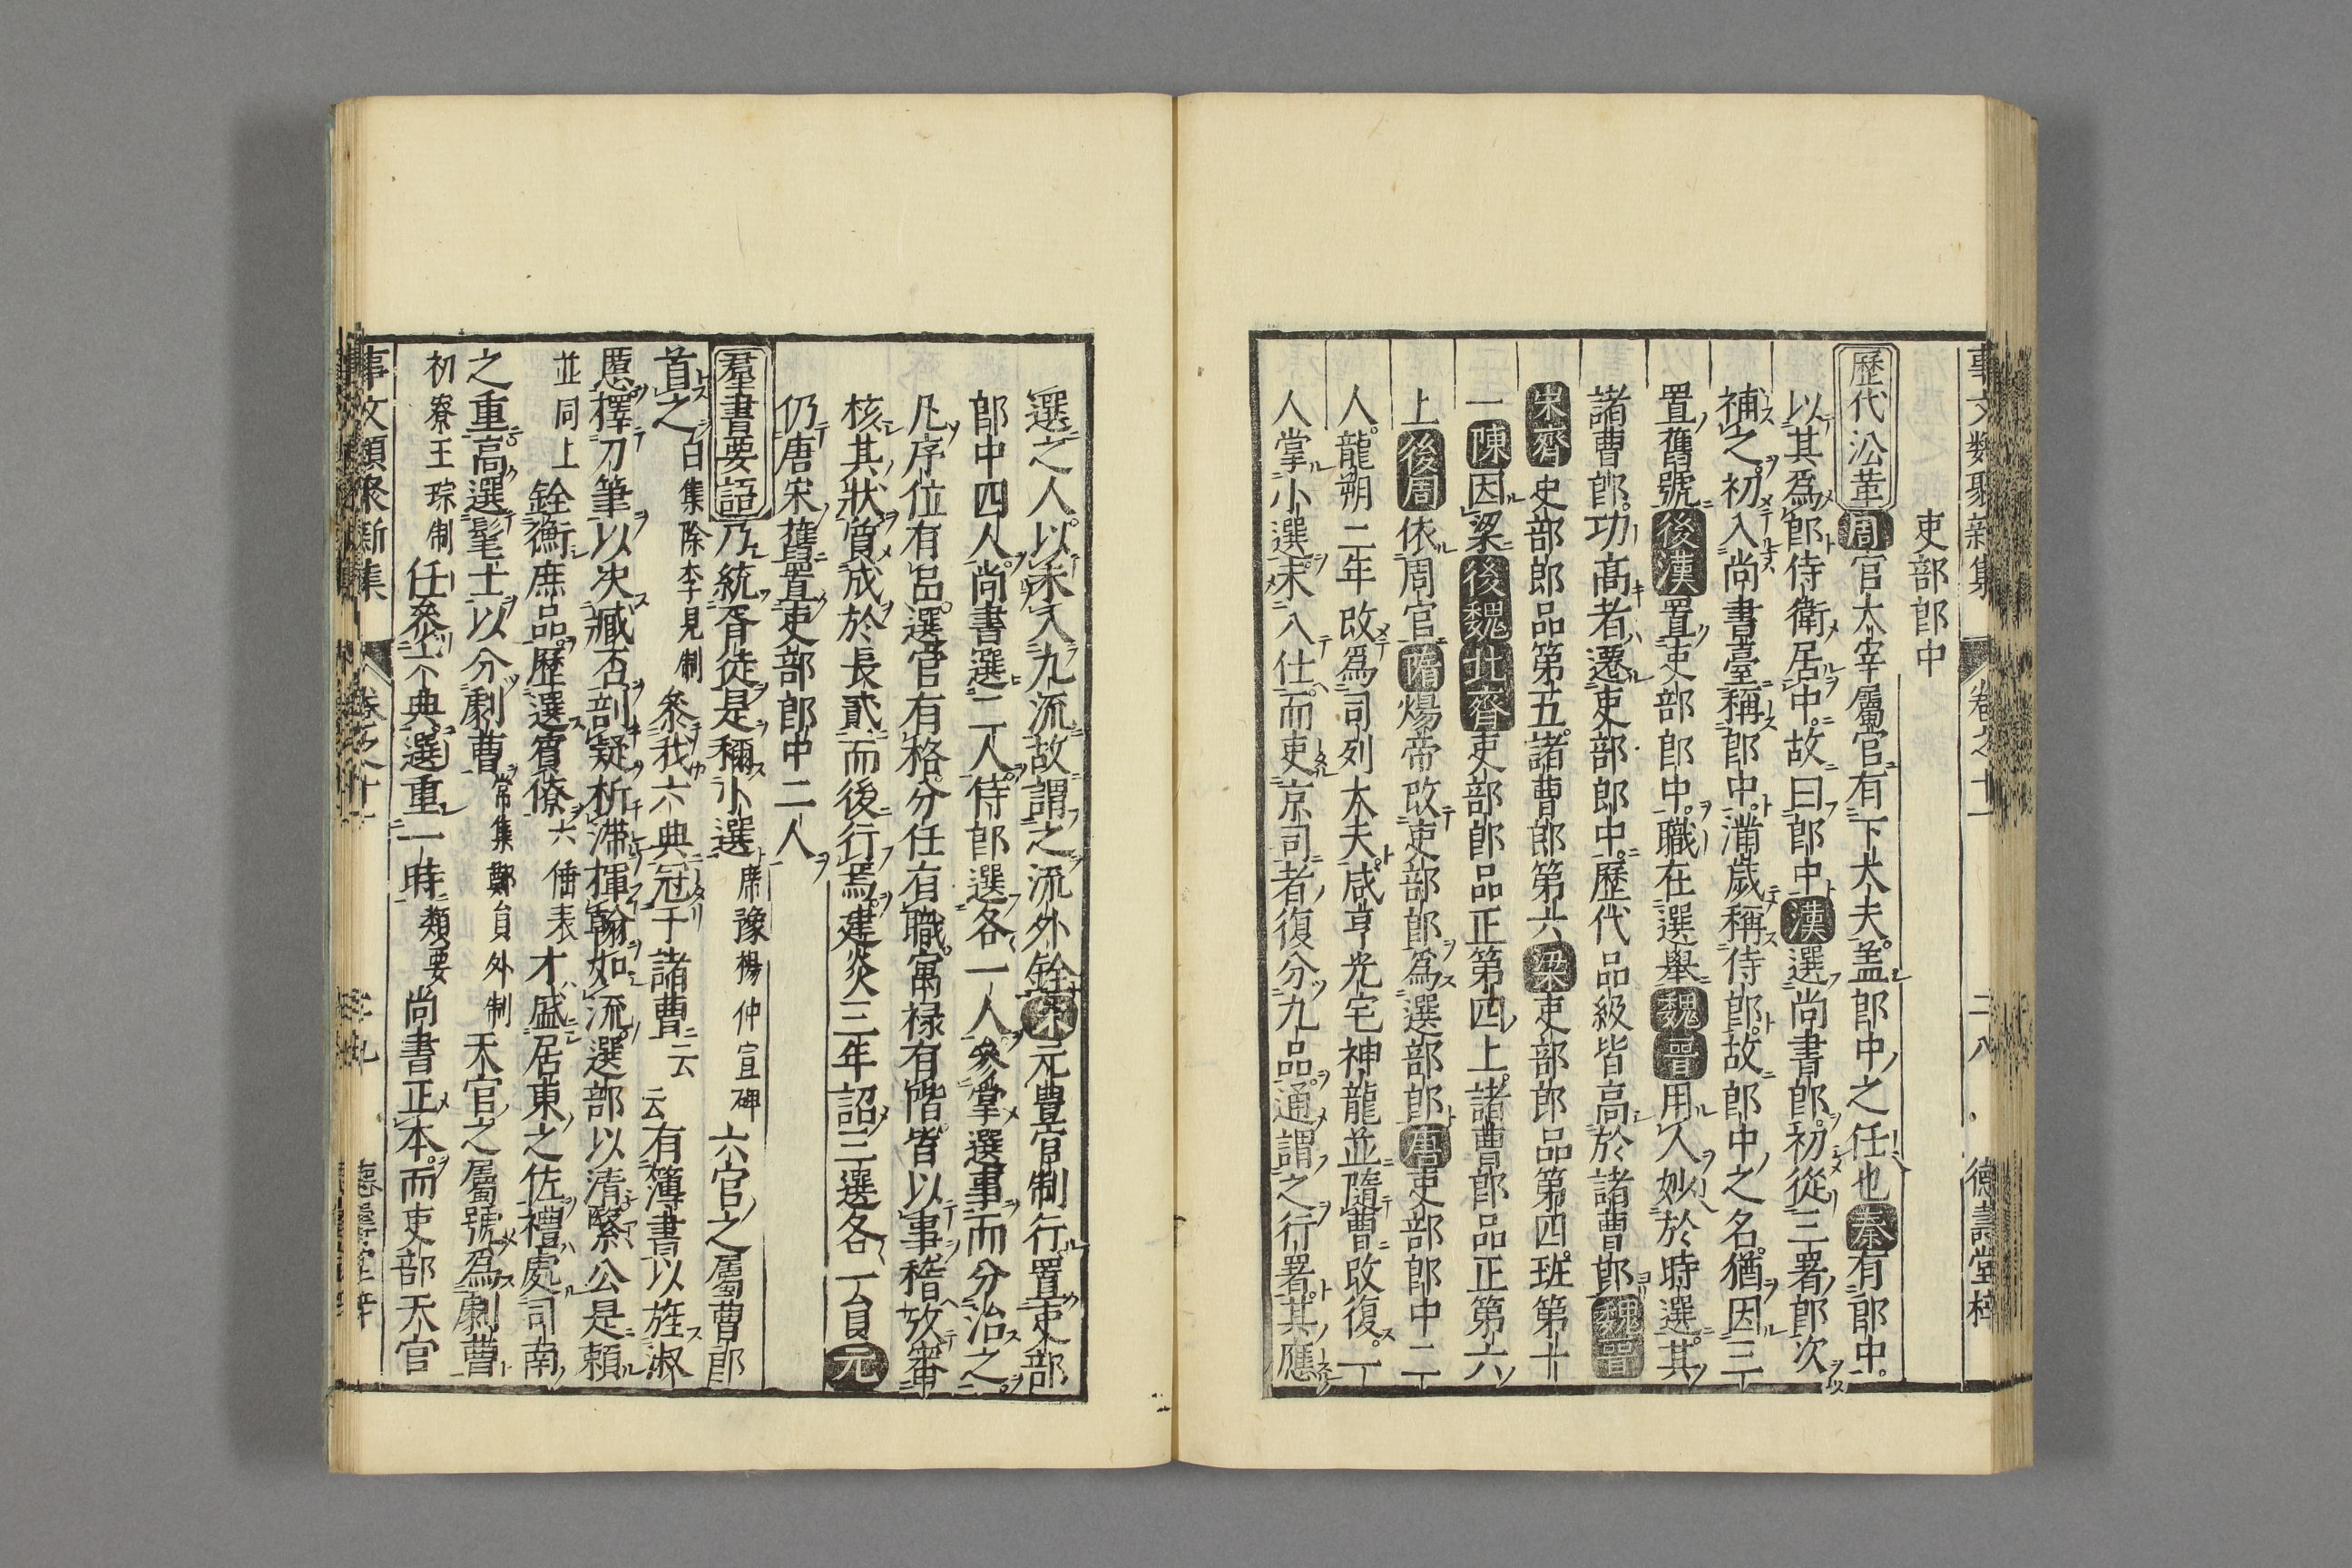 事文類聚新集 卷之十一 二八 德壽堂梓
吏部郎中
歷代沿革 周官太宰屬官有下大夫盖郎中之任也秦有郎中
以其爲郎侍衛居中故曰郎中漢選尚書郎初從三署郎次
補之初入尚書臺稱郎中滿歲稱侍郎故郎中之名猶因三
置舊號後漢置吏部郎中職在選舉魏晋用人妙於時選其
諸曹郎功高者遷吏部郎中歷代品級皆高於諸曹郎魏晋
宋齊吏部郎品第五諸曹郎第六梁吏部郎品第四班第十
一陳因梁後魏北齊吏部郎品正第四上諸曹郎品正第六
上後周依周官隋煬帝改吏部郎爲選部郎唐吏部郎中二
人龍朔二年改爲司列大夫咸亨光宅神龍並隨曹改復一
人掌小選未入仕而吏京司者復分九品通謂之行署其應
選之人以未入九流故謂之流外銓宋元豊官制行置吏部
郎中四人尚書選二人侍郎選各一人參掌選事而分治之
凡序位有品選官有格分任有職寓禄有階皆以事稽攷審
核其狀質成於長貳而後行焉建炎三年詔三選各一員元
仍唐宋舊置吏部郎中二人
羣書要語 乃統胥徒是稱小選席豫楊仲宣碑六官之屬曹郎
首之白集除李見制叅我六典冠于諸曹云云有簿書以旌淑
慝擇刀筆以次臧否剖疑析滯揮翰如流選部以清繄公是頼
並同上銓衡庶品歷選賓僚六倕表才盛居東之佐禮處司南
之重高選髦士以分劇曹常集鄭員外制天官之屬號爲劇曹
初寮王琮制任叅六典選重一時類要尚書正本而吏部天官
事文類聚新集 卷之十一